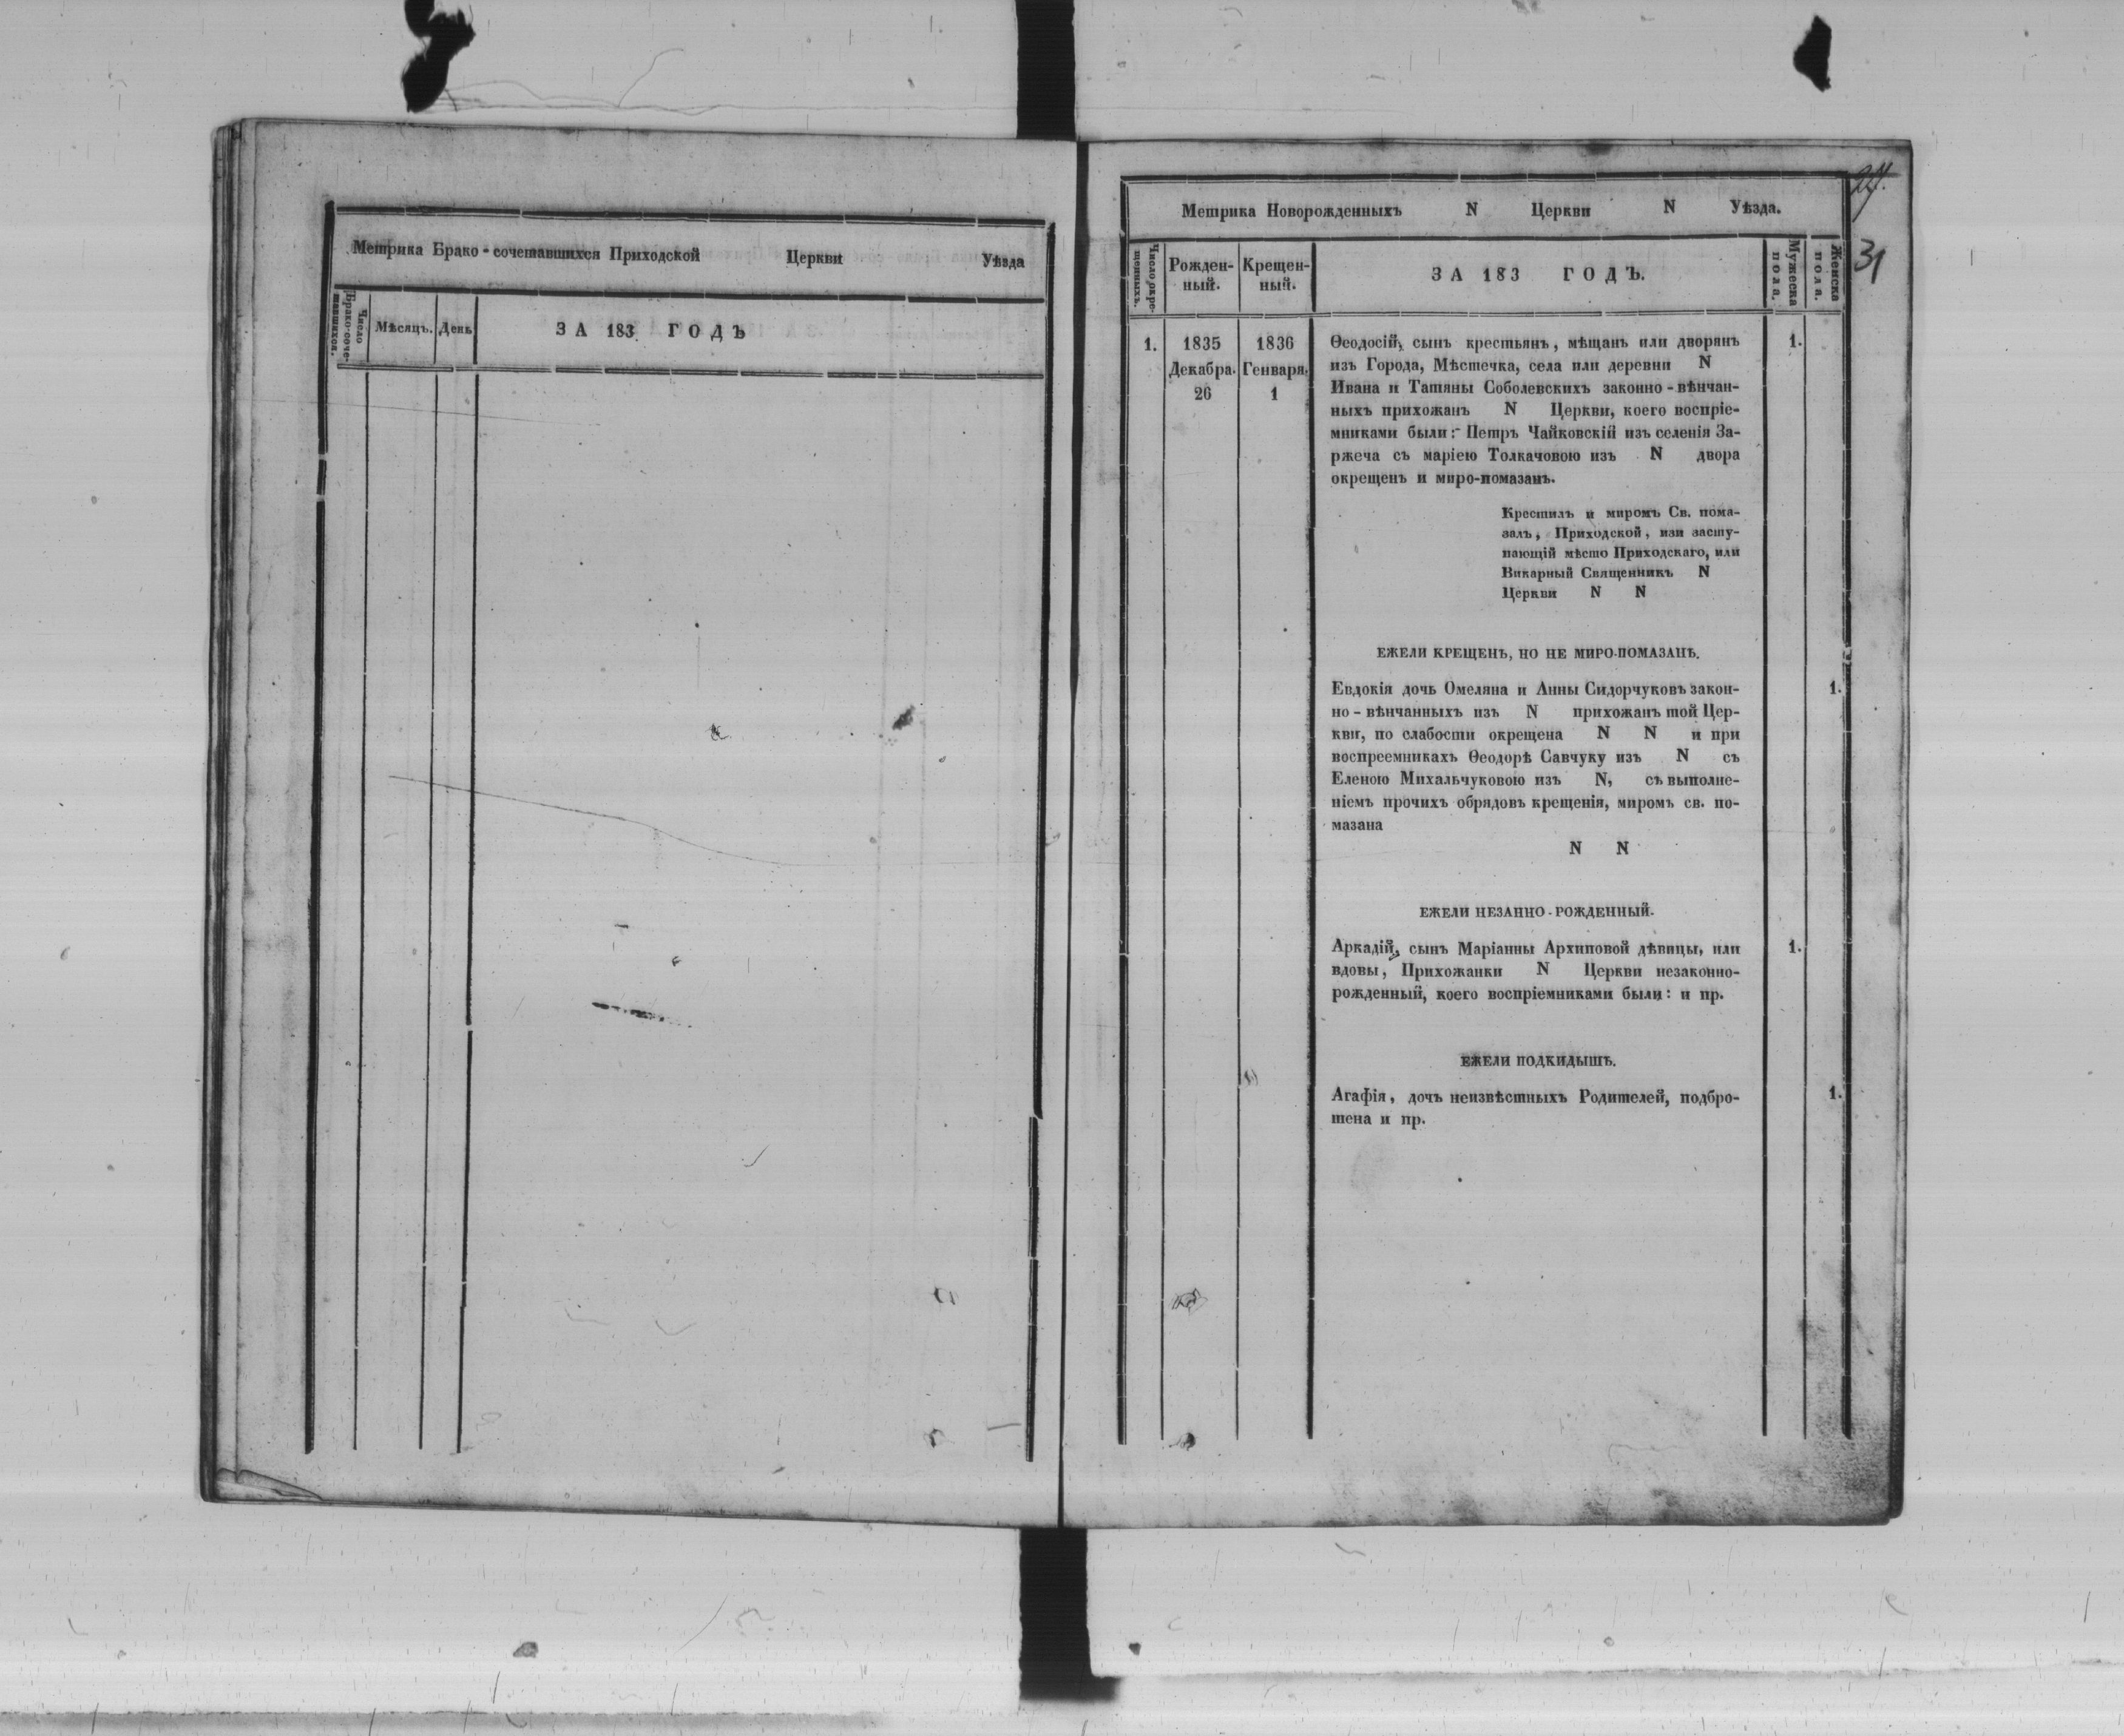 Метрика Брако-сочетавшихся Приходской Церкви Уѣзда
Число
Брако-соче-
тавшихся.
Мѣсяцъ.
День
ЗА 183 ГОДЪ
31
Метрика Новорожденныхъ N Церкви N Уѣзда.
Число кре-
щенныхъ.
Рожден-
ный.
Крещен-
ный.
ЗА 183 ГОДЪ.
Мужеска
пола.
Женска
пола.
1. 1835 1836 Ѳеодосій, сынъ крестьянъ, мѣщанъ или дворянъ 1.
Декабра. Генваря. изъ Города, Мѣстечка, села или деревни N
26 1 Ивана и Татяны Соболевскихъ законно-вѣнчан-
ныхъ прихожанъ N Церкви, коего воспріе-
мниками были: Петръ Чайковскій изъ селенія За-
ржеча съ маріею Толкачовою изъ N двора
окрещенъ и миро-помазанъ.
Крестилъ и миромъ Св. пома-
залъ, Приходской, изи засту-
пающій мѣсто Приходскаго, или
Викарный Священникъ N
Церкви N N
ЕЖЕЛИ КРЕЩЕНЪ, НО НЕ МИРО-ПОМАЗАНЪ.
Евдокія дочь Омеляна и Анны Сидорчуковъ закон- 1.
но-вѣнчанныхъ изъ N прихожанъ той Цер-
кви, по слабости окрещена N N и при
воспреемникахъ Ѳеодорѣ Савчуку изъ N съ
Еленою Михальчуковою изъ N, съ выполне-
ніемъ прочихъ обрядовъ крещенія, миромъ св. по-
мазана
N N
ЕЖЕЛИ НЕЗАННО-РОЖДЕННЫЙ.
Аркадій, сынъ Маріанны Архиповой дѣвицы, или 1.
вдовы, Прихожанки N Церкви незаконно-
рожденный, коего воспріемниками были: и пр.
ЕЖЕЛИ ПОДКИДЫШЪ.
Агафія, дочъ неизвѣстныхъ Родителей, подбро- 1.
шена и пр.